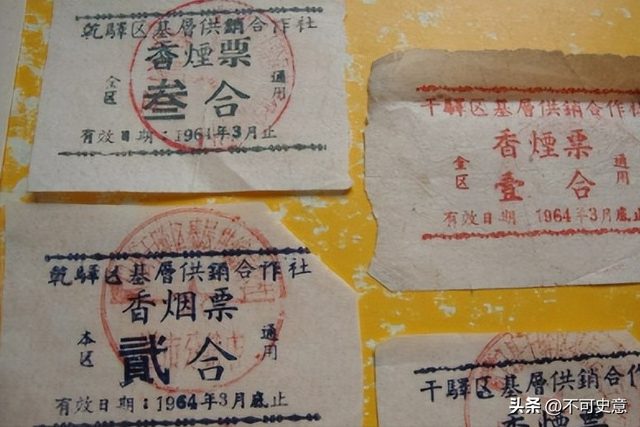 乾驛区基層供銷合作社
香煙票
全区
叁合
通用
有效日期：1964年3月止
干驛区基層供銷合作
香煙票
全区
壹合
通用
有效日期 1964年3月底止
乾驛区基層供銷合作社
香烟票
本区
貳合
通用
有效日期：1964年3月底止
干驛区基層供銷合作社
香煙票
头条 @不可史意